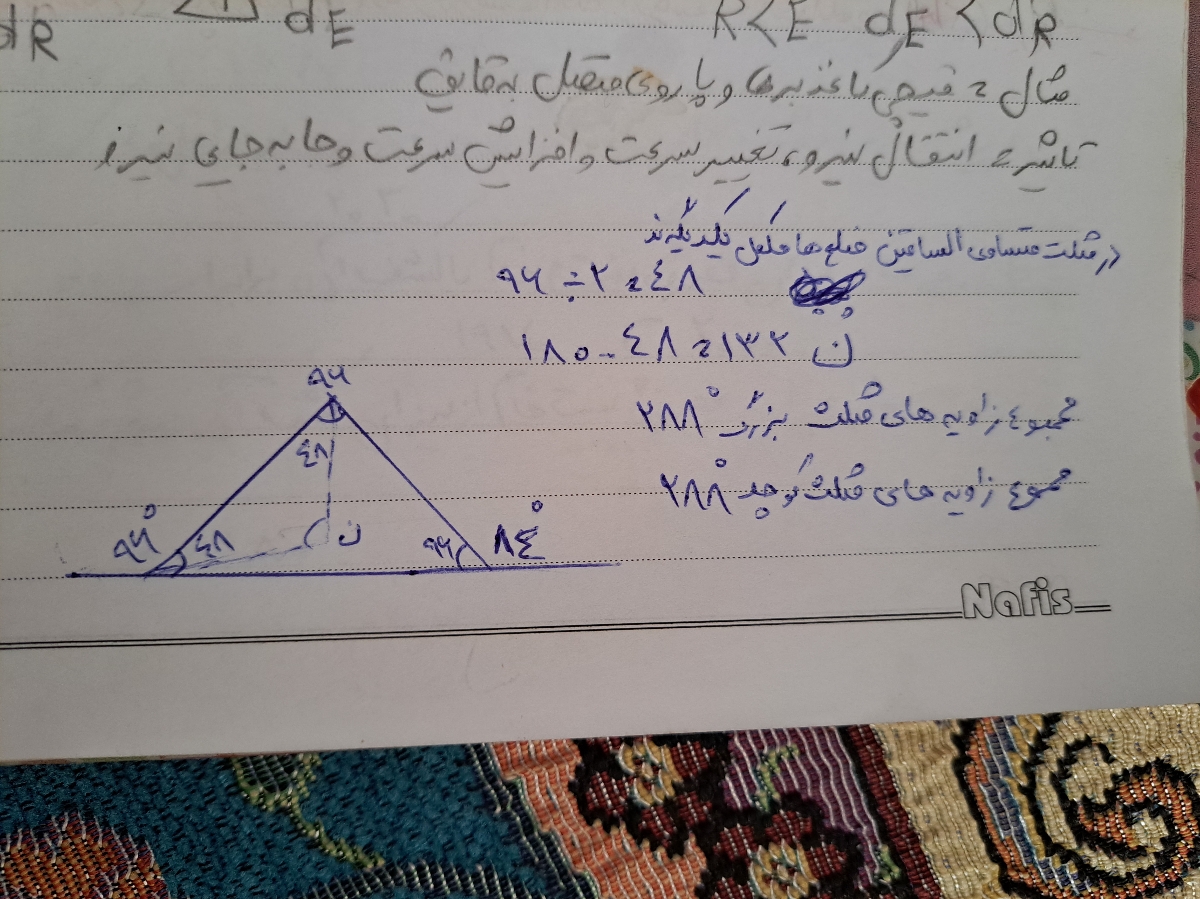 dR dE R<E dE<dR
مثال = قیچی کاغذ برها و پا روی متصل به قایق
تاثیر = انتقال نیرو، تغییر سرعت و افزایش سرعت و جا به جای نیرو
در مثلث متساوی الساقین ضلع ها مکمل یکدیگرند
۹۶ ÷ ۲ = ٤٨
ن ۱۸۰ - ٤٨ = ۱۳۲
مجموع زاویه های مثلث بزرگ ۲۸۸°
مجموع زاویه های مثلث کوچک ۲۸۸°
۹۶
٤٨
۹۶° ٤٨ ن ۹۶ ۸٤°
Nafis